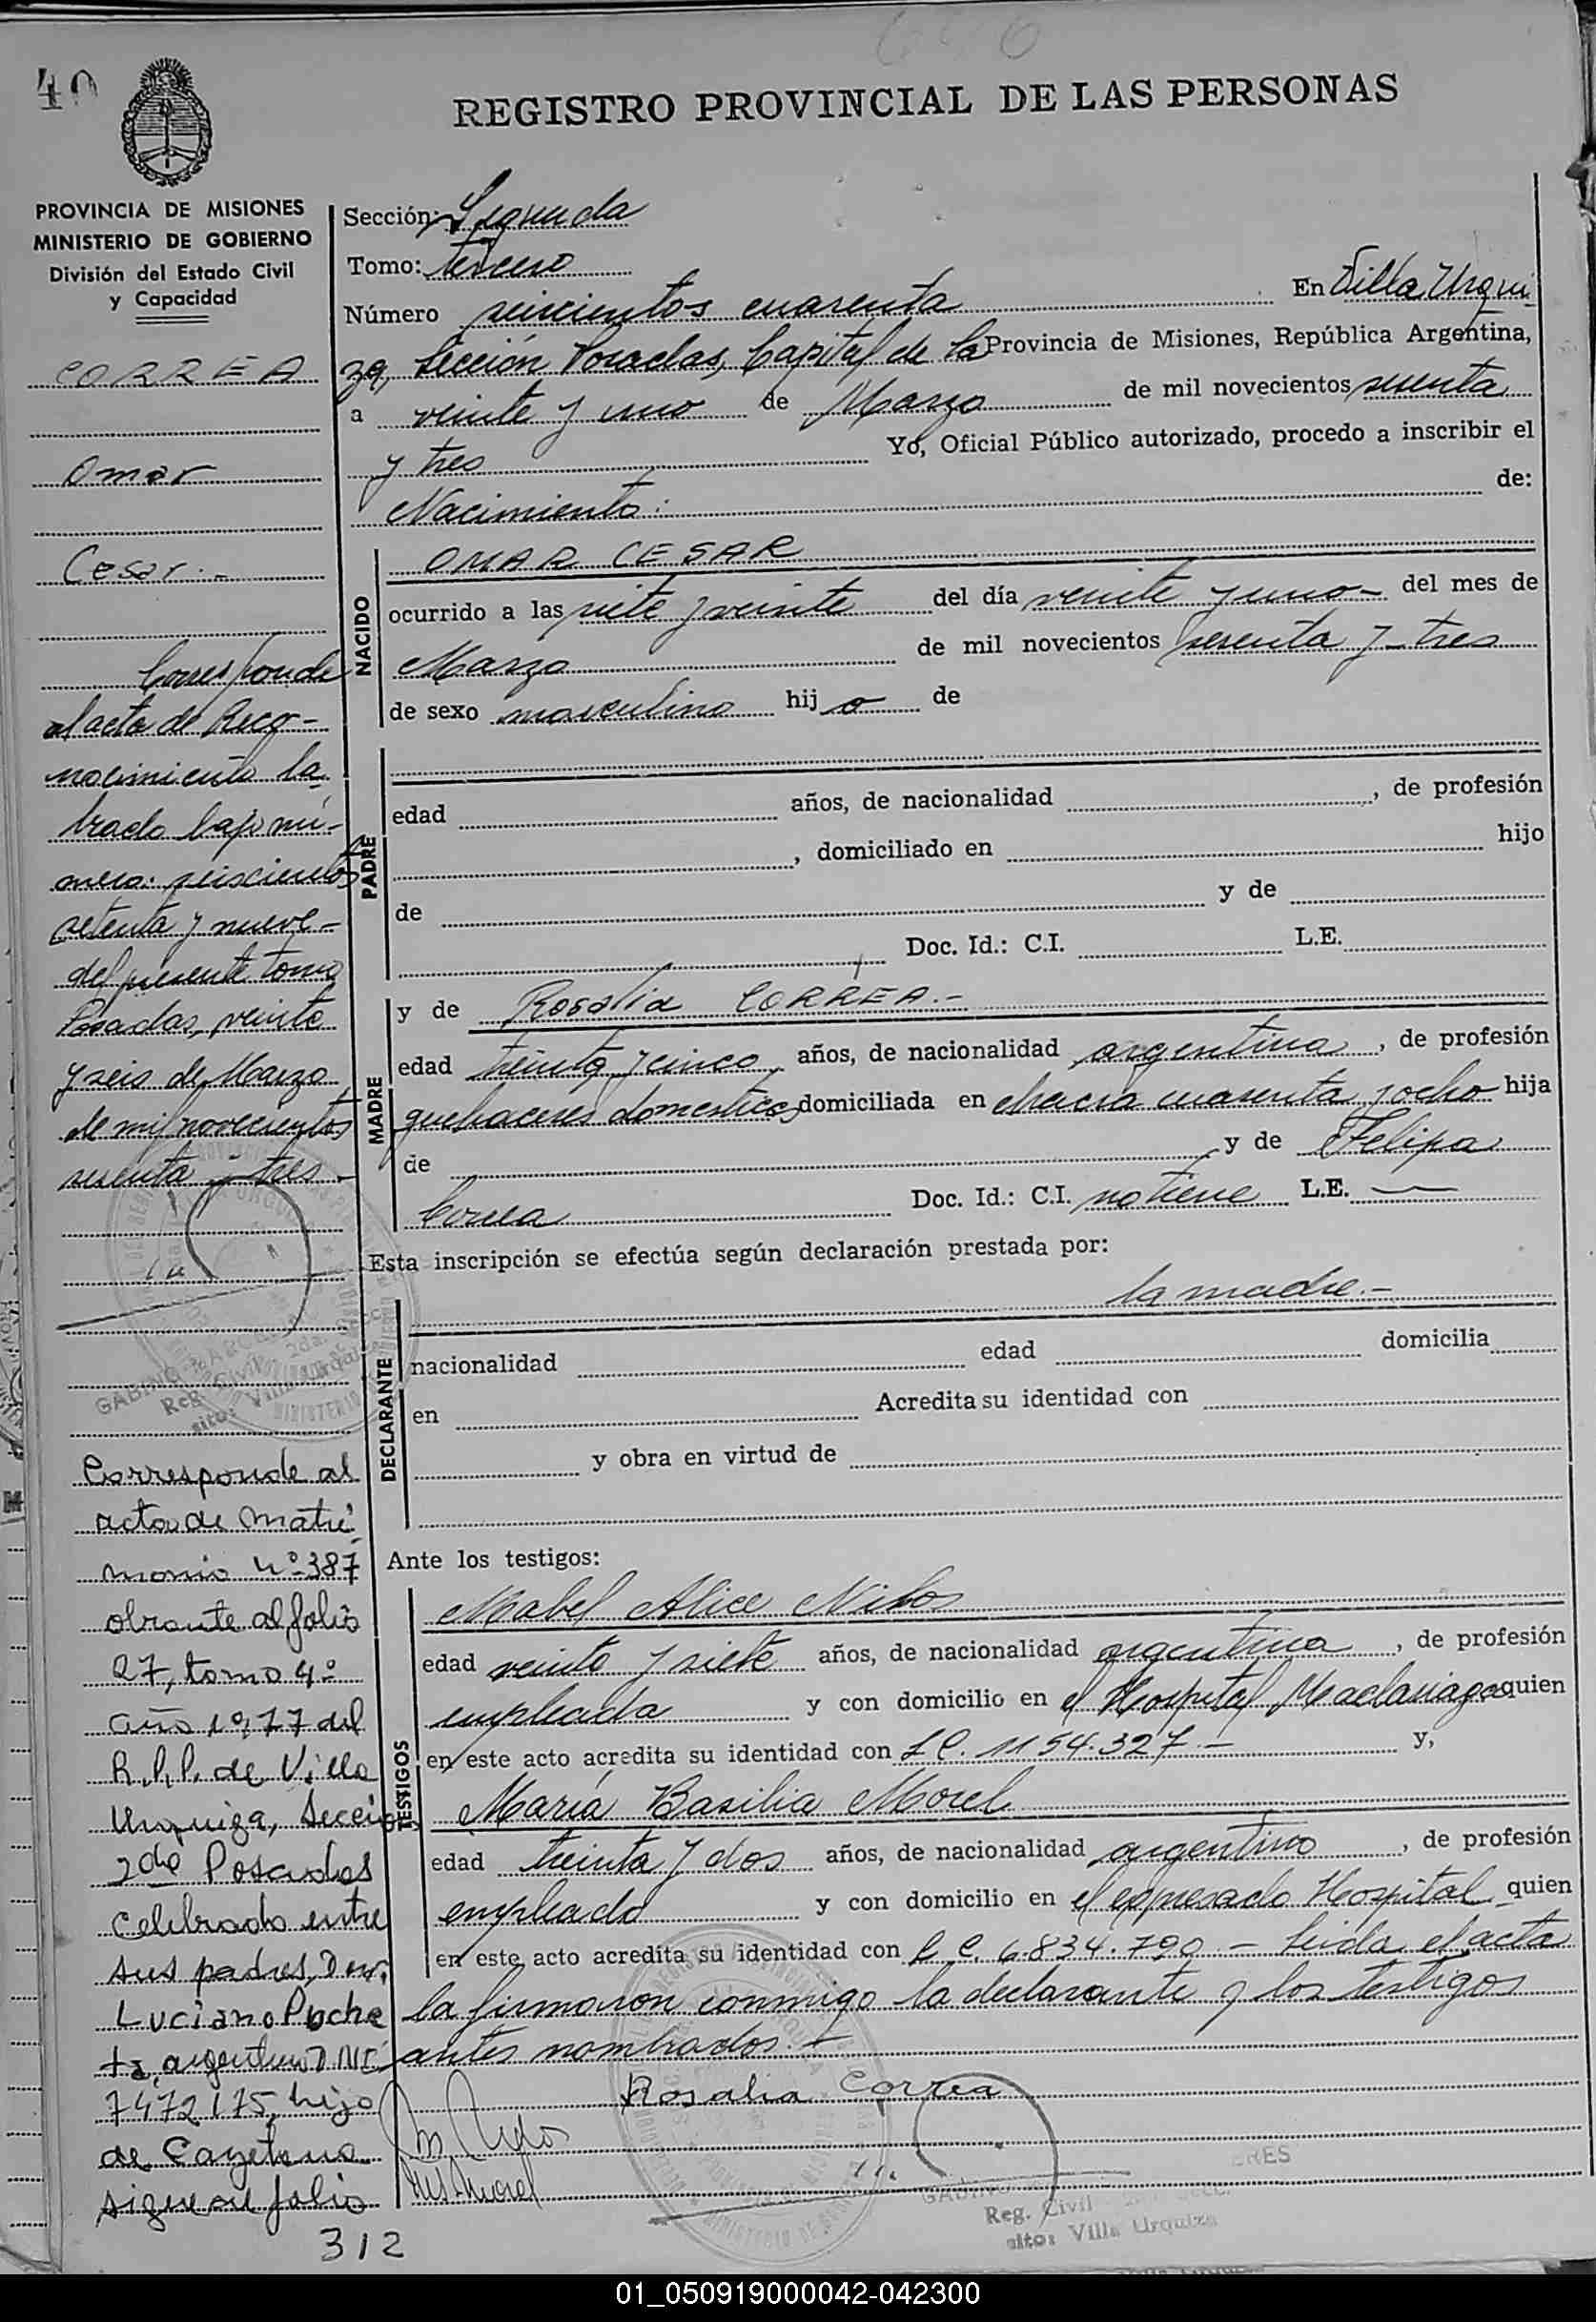 40
REGISTRO PROVINCIAL DE LAS PERSONAS
PROVINCIA DE MISIONES
MINISTERIO DE GOBIERNO
División del Estado Civil
y Capacidad
CORREA
Omar
Cesar.-
Corresponde
al acta de Reco-
nocimiento la
brado bajo nú-
mero: seiscientos
setenta y nueve-
del presente tomo
Posadas, veinte
y seis de Marzo
de mil novecientos
sesenta y tres.-
Corresponde al
acta de matri
monio Nº 387
obrante al folio
27, tomo 4º
año 1977 del
R.P.P. de Villa
Urquiza, Secció
2da Posadas
celebrado entre
sus padres, Don
Luciano Poche
ta, argentino D.N.I.
7472175, hijo
de Cayetana
sigue en folio
312
Sección: Segunda
Tomo: tercero
Número seiscientos cuarenta En Villa Urqui
za, Sección Posadas, Capital de la Provincia de Misiones, República Argentina,
a veinte y uno de Marzo de mil novecientos sesenta
y tres Yo, Oficial Público autorizado, procedo a inscribir el
Nacimiento: de:
NACIDO
OMAR CESAR
ocurrido a las siete y veinte del día veinte y uno- del mes de
Marzo de mil novecientos sesenta y tres
de sexo masculino hijo de
PADRE
edad años, de nacionalidad , de profesión
, domiciliado en hijo
de y de
Doc. Id.: C.I. L.E.
MADRE
y de Rosalía CORREA.-
edad treinta y cinco años, de nacionalidad argentina, de profesión
quehaceres domesticos domiciliada en chacra cuarenta y ocho hija
de y de Felipa
Correa Doc. Id.: C.I. no tiene L.E. —
Esta inscripción se efectúa según declaración prestada por:
la madre.-
DECLARANTE
nacionalidad edad domicilia
en Acredita su identidad con
y obra en virtud de
Ante los testigos:
TESTIGOS
Mabel Alice
edad veinte y siete años, de nacionalidad argentina, de profesión
empleada y con domicilio en el Hospital Madariaga quien
en este acto acredita su identidad con L.C. 1154.327.- y,
María Basilia Morel
edad treinta y dos años, de nacionalidad argentina, de profesión
empleada y con domicilio en el expresado Hospital quien
en este acto acredita su identidad con L.C. 6.834.790 - Leída el acta
la firmaron conmigo la declarante y los testigos
antes nombrados.-
Rosalia Correa
Reg. Civil
sito: Villa Urquiza
01_050919000042-042300